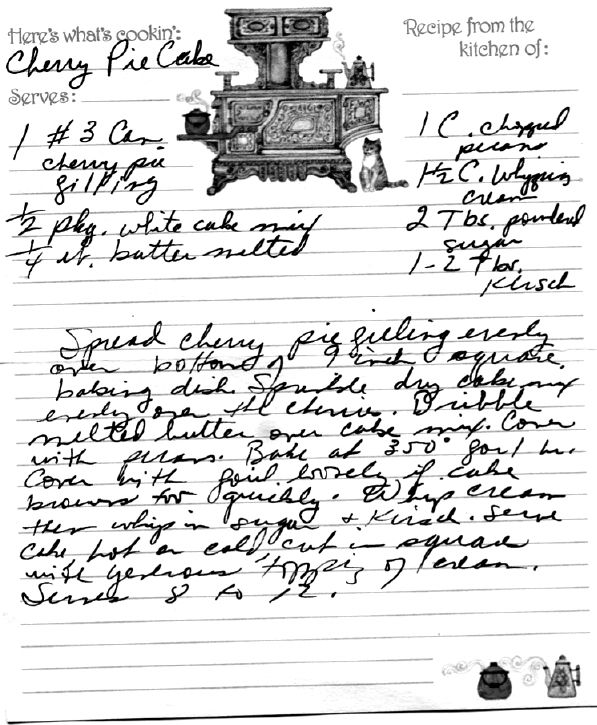 Here's what's cookin':
Cherry Pie Cake
Serves:
Recipe from the
kitchen of:
1 #3 Can
cherry pie
filling
1/2 pkg. white cake mix
1/4 lb. butter melted
1 C. chopped
pecans
1 1/2 C. Whipping
cream
2 Tbs. powdered
sugar
1-2 Tbs.
Kirsch
Spread cherry pie filling evenly
over bottom of 9 inch square
baking dish. Sprinkle dry cake mix
evenly over the cherries. Dribble
melted butter over cake mix. Cover
with pecans. Bake at 350° for 1 hr.
Cover with foil loosely if cake
browns too quickly. Whip cream
then whip in sugar & Kirsch. Serve
cake hot or cold, cut in squares
with generous topping of cream.
Serves 8 to 12.